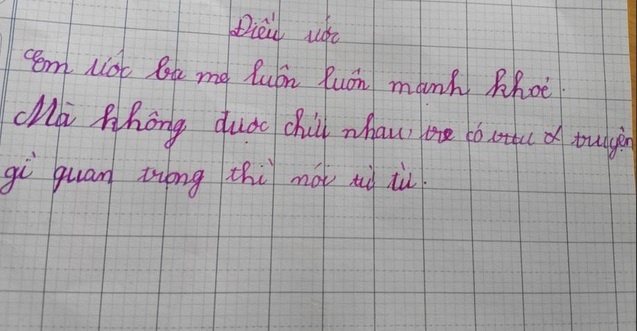 Điều ước
Em ước ba mẹ luôn luôn mạnh khoẻ.
Mà không được chửi nhau có truyện
gì quan trọng thì nói từ từ.